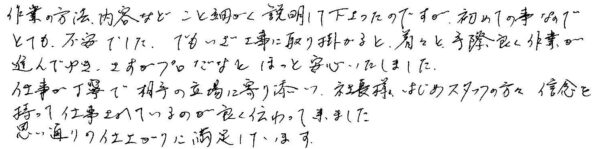 作業の方法、内容など こと細かく説明して下さったのですが、初めての事なので
とても、不安でした。でもいざ工事に取り掛かると、着々と手際良く作業が
進んでゆき、さすがプロだなと ほっと安心いたしました。
仕事が丁寧で相手の立場に寄り添い、社長様、はじめスタッフの方々 信念を
持って仕事されているのが良く伝わって来ました
思い通りの仕上がりに満足しています。